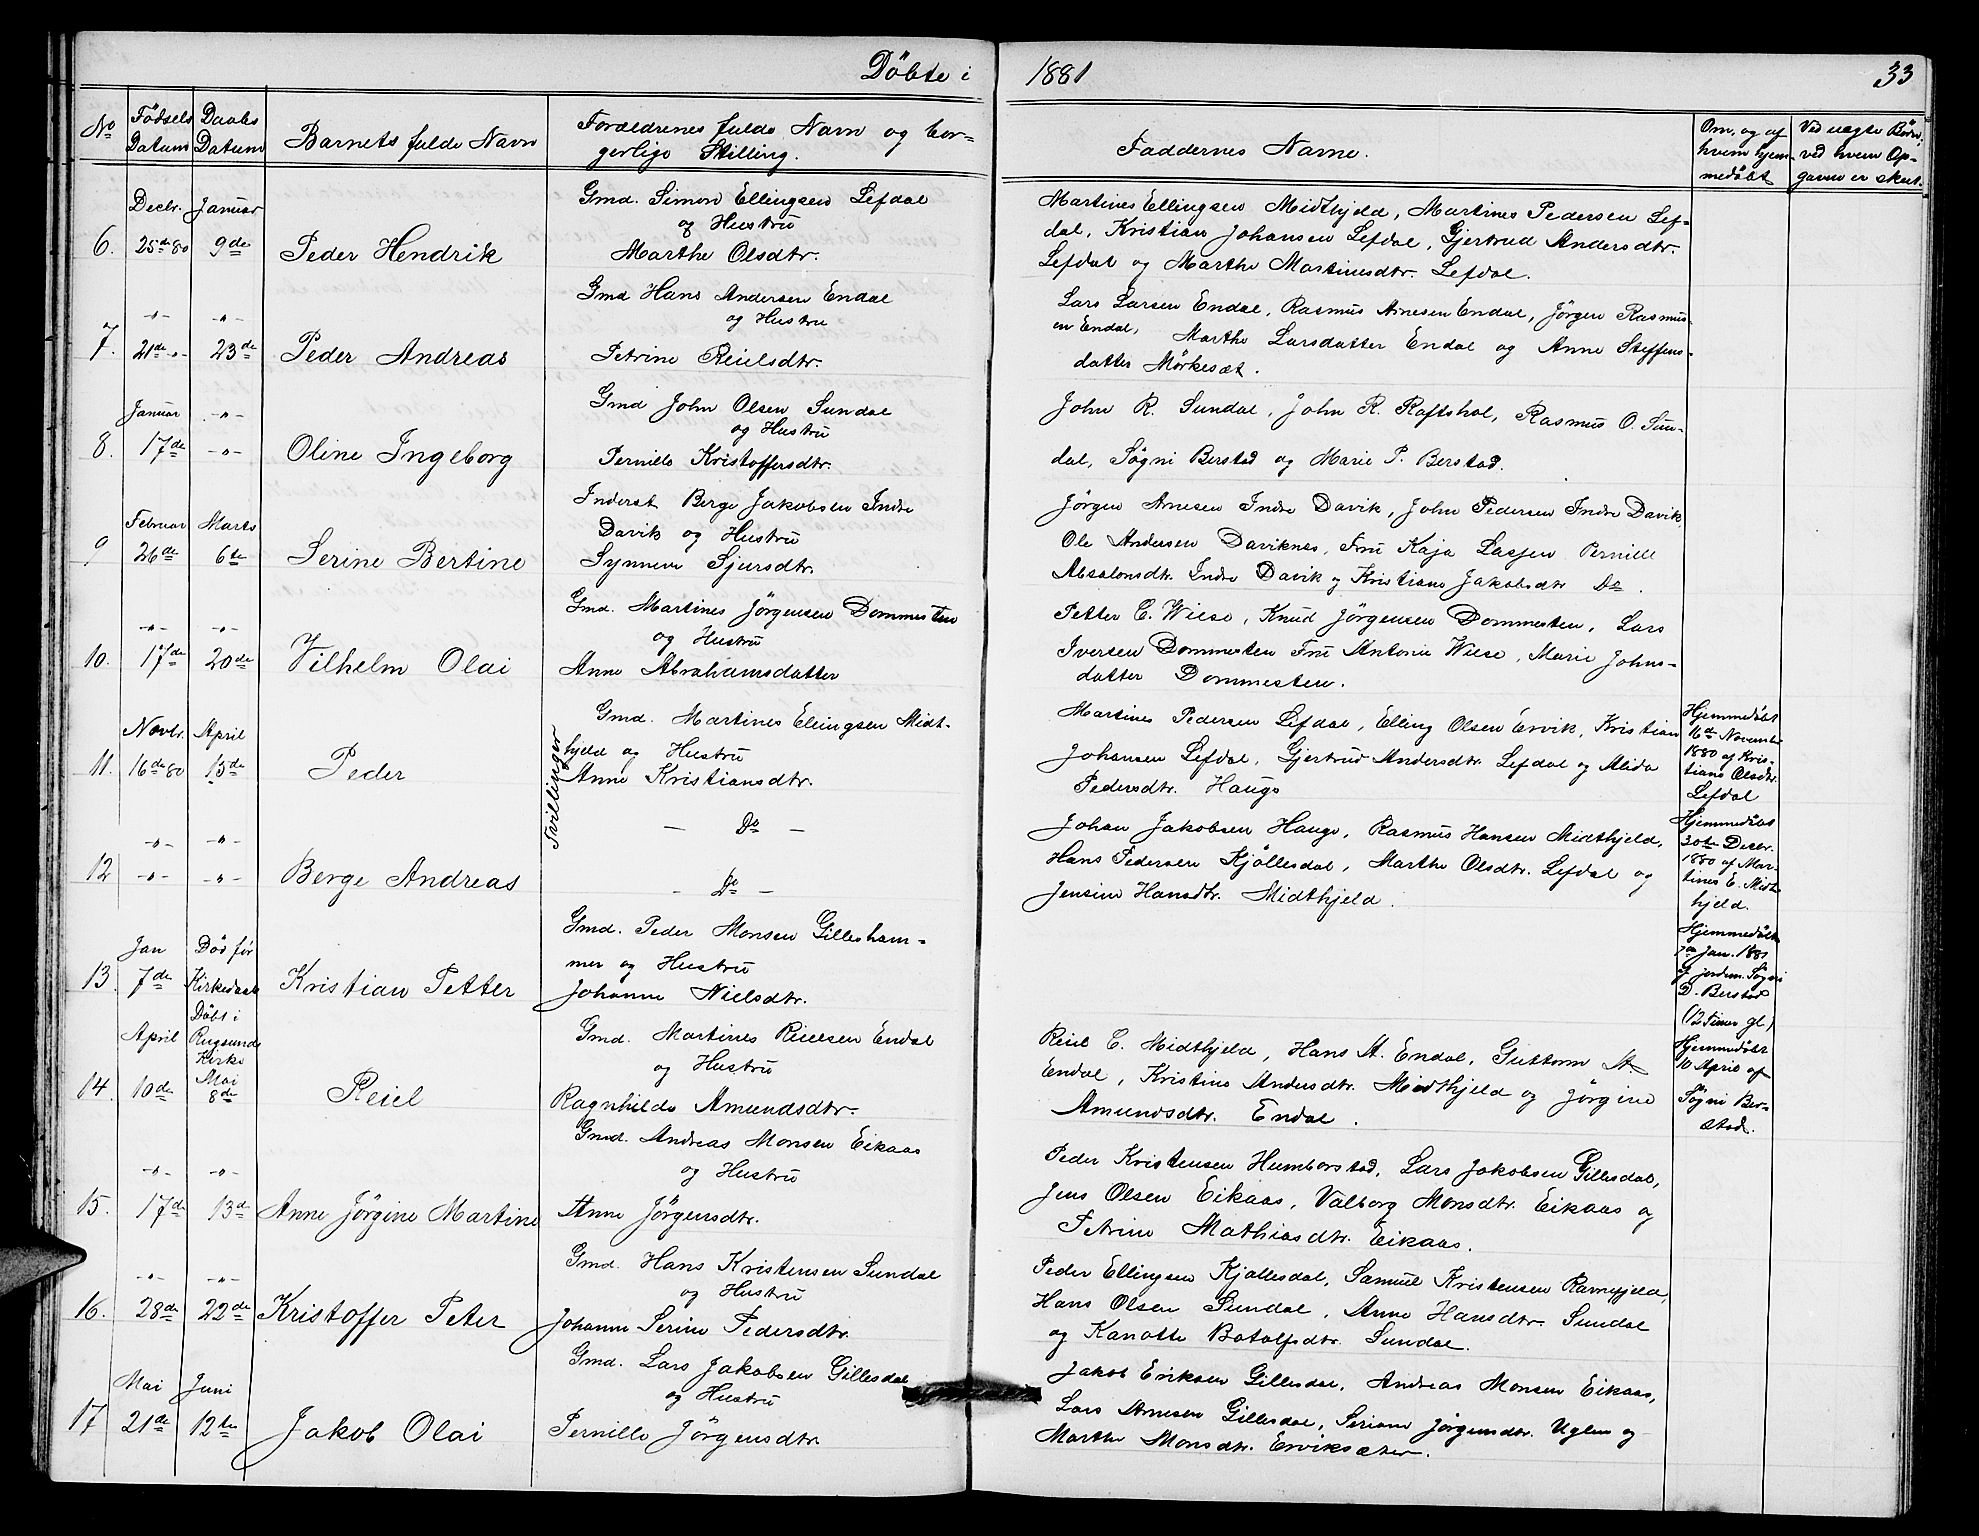 Döbte i 1881 33
No
Födsels Datum
Daabs Datum
Barnets fulde Navn
Forældrenes fulde Navn og bor-
gerlige Stilling.
Faddernes Navne.
Om, og af
hvem hjem-
medöbt
Ved uægte Börn,
ved hvem Op-
gaven er skeet.
Decbr. Januar
6. 25de 80 9de Peder Hendrik
Gmd. Simon Ellingsen Lefdal
og Hustru
Marthe Olsdtr.
Martines Ellingsen Midthjeld, Martines Pedersen Lef-
dal, Kristian Johansen Lefdal, Gjertrud Andersdtr.
Lefdal og Marthe Martinesdtr. Lefdal.
-"- -"-
7. 21de -"- 23de Peder Andreas
Gmd Hans Andersen Endal
og Hustru
Petrine Reielsdtr.
Lars Larsen Endal, Rasmus Arnesen Endal, Jörgen Rasmus-
en Endal, Marthe Larsdatter Endal og Anne Steffens-
datter Mörkesæt.
Januar -"-
8. 17de -"- Oline Ingeborg
Gmd John Olsen Sundal
og Hustru
Pernille Kristoffersdtr.
John R. Sundal, John R. Raftshol, Rasmus O. Sun-
dal, Sögni Berstad og Marie P. Berstad.
Februar Marts
9 26de 6te Serine Bertine
Inderst Berge Jakobsen Indre
Davik og Hustru
Synneve Sjursdtr.
Jörgen Arnesen Indre Davik, John Pedersen Indre Davik
Ole Andersen Daviknes, Fru Kaja Lassen Pernille
Absalonsdtr. Indre Davik og Kristiane Jakobsdtr Do.
-"- -"-
10. 17de 20de Vilhelm Olai
Gmd. Martines Jörgensen Dommesten
og Hustru
Anne Abrahamsdatter
Petter C. Wiese, Knud Jörgensen Dommesten, Lars
Iversen Dommesten Fru Antonie Wiese, Marie Johns-
datter Dommesten.
Novbr. April
11. 16de 80 15de Peder
Tvillinger
Gmd. Martines Elingsen Midt-
hjeld og Hustru
Anne Kristiansdtr.
Martines Pedersen Lefdal, Elling Olsen Ervik, Kristian
Johansen Lefdal, Gjertrud Andersdtr. Lefdal og Alida
Pedersdtr. Hauge
Hjemmedöbt
16de November
1880 af Kris-
tiane Olsdtr.
Lefdal
-"- -"-
12 -"- -"- Berge Andreas
- Do -
- Do -
Johan Jakobsen Hauge, Rasmus Hansen Midthjeld,
Hans Pedersen Kjöllesdal, Marthe Olsdtr. Lefdal og
Jensine Hansdtr. Midthjeld.
Hjemmedöbt
30te Decbr.
1880 af Mar-
tines E. Midt-
hjeld.
Jan Död för
13. 7de Kirkedaab Kristian Petter
Gmd. Peder Monsen Gillesham-
mer og Hustru
Johanne Nielsdtr.
Hjemmedöbt
7de Jan. 1881
af jordm. Sögni
D. Berstad
(12 Timer gl.)
April Döbt i Rugsunds Kirke
14. 10de Mai 8de Reiel
Gmd. Martines Reielsen Endal
og Hustru
Ragnhilde Amundsdtr.
Reiel C. Midthjeld, Hans A. Endal, Guttorm A
Endal, Kristine Andersdtr. Midthjeld og Jörgine
Amundsdtr. Endal.
Hjemmedöbt
10 April af
Sögni Ber-
stad.
-"- -"-
15. 17de 13de Anne Jörgine Martine
Gmd. Andreas Monsen Eikaas
og Hustru
Anne Jörgensdtr.
Peder Kristensen Humborstad, Lars Jakobsen Gillesdal,
Jens Olsen Eikaas, Valborg Monsdtr. Eikaas og
Petrine Mathiasdtr. Eikaas.
-"- -"-
16. 28de 22de Kristoffer Peter
Gmd. Hans Kristensen Sundal
og Hustru
Johanne Serine Pedersdtr.
Peder Ellingsen Kjöllesdal, Samuel Kristensen Ramsfjeld,
Hans Olsen Sundal, Anne Hansdtr. Sundal
og Kanotte Botolfsdtr. Sundal.
Mai Juni
17 21de 12te Jakob Olai
Gmd. Lars Jakobsen Gillesdal
og Hustru
Pernille Jörgensdtr.
Jakob Eriksen Gillesdal, Andreas Monsen Eikaas,
Lars Arnesen Gillesdal, Seriane Jörgensdtr. Uglen og
Marthe Monsdtr. Erviksæter.